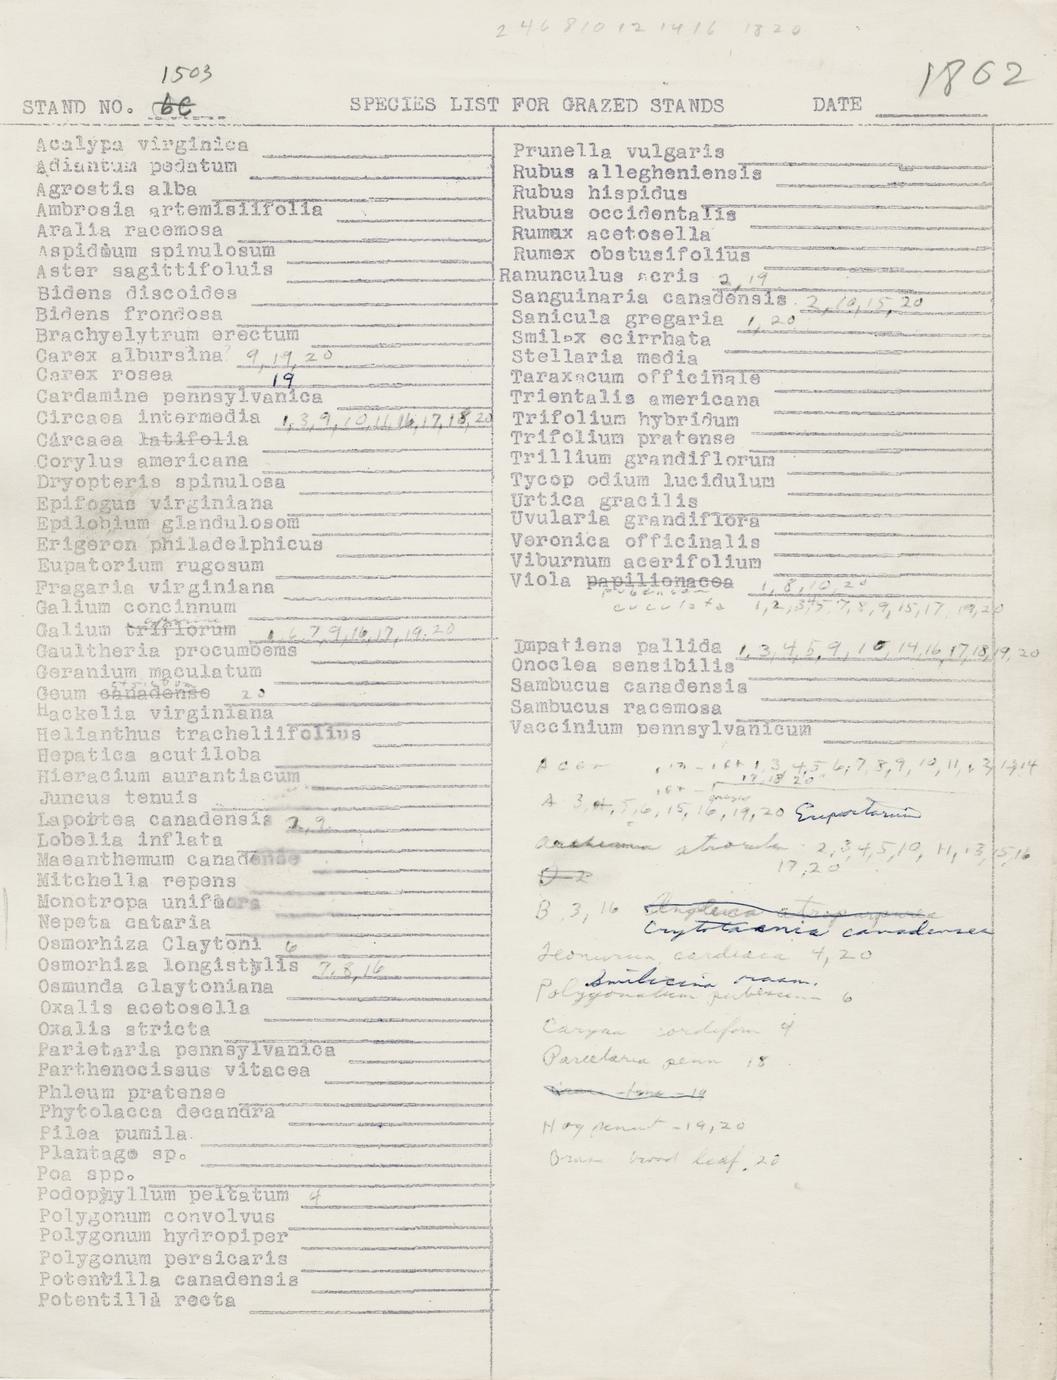 2 4 6 8 10 12 14 16 18 20
1503
1862
STAND NO. 60
SPECIES LIST FOR GRAZED STANDS
DATE
Acalypa virginica
Adiantum pedatum
Agrostis alba
Ambrosia artemisiifolia
Aralia racemosa
Aspidium spinulosum
Aster sagittifoluis
Bidens discoides
Bidens frondosa
Brachyelytrum erectum
Carex albursina 9, 19, 20
Carex rosea 19
Cardamine pennsylvanica
Circaea intermedia 1, 3, 9, 10, 11, 16, 17, 18, 20
Circaea latifolia
Corylus americana
Dryopteris spinulosa
Epifogus virginiana
Epilobium glandulosom
Erigeron philadelphicus
Eupatorium rugosum
Fragaria virginiana
Galium concinnum
Galium triflorum 1, 6, 7, 9, 16, 17, 19, 20
Gaultheria procumbems
Geranium maculatum
Geum canadense 20
Hackelia virginiana
Helianthus tracheliifolius
Hepatica acutiloba
Hieracium aurantiacum
Juncus tenuis
Laportea canadensis 2, 9
Lobelia inflata
Maeanthemum canadense
Mitchella repens
Monotropa uniflora
Nepeta cataria
Osmorhiza Claytoni 6
Osmorhiza longistylis 7, 8, 16
Osmunda claytoniana
Oxalis acetosella
Oxalis stricta
Parietaria pennsylvanica
Parthenocissus vitacea
Phleum pratense
Phytolacca decandra
Pilea pumila
Plantago sp.
Poa spp.
Podophyllum peltatum 4
Polygonum convolvus
Polygonum hydropiper
Polygonum persicaris
Potentilla canadensis
Potentilla recta
Prunella vulgaris
Rubus allegheniensis
Rubus hispidus
Rubus occidentalis
Rumax acetosella
Rumex obstusifolius
Ranunculus acris 2, 19
Sanguinaria canadensis 2, 10, 15, 20
Sanicula gregaria 1, 20
Smilax ecirrhata
Stellaria media
Taraxacum officinale
Trientalis americana
Trifolium hybridum
Trifolium pratense
Trillium grandiflorum
Tycop odium lucidulum
Urtica gracilis
Uvularia grandiflora
Veronica officinalis
Viburnum acerifolium
Viola papilionacea 1, 8, 10, 20
cucullata 1, 2, 3, 4, 5, 7, 8, 9, 15, 17, 19, 20
Impatiens pallida 1, 3, 4, 5, 9, 10, 14, 16, 17, 18, 19, 20
Onoclea sensibilis
Sambucus canadensis
Sambucus racemosa
Vaccinium pennsylvanicum
Acer 1, 3, 4, 5, 6, 7, 8, 9, 10, 11, 13, 14
17, 18, 20
A 3, 4, 5, 6, 15, 16, 19, 20 Eupatorium
2, 3, 4, 5, 10, 11, 13, 15, 16
17, 20
B 3, 16 Angelica atropurpurea
Crytotaenia canadensis
Leonurus cardiaca 4, 20
Smilicina racem.
Polygonatum pubescens 6
Carya cordiform 4
Parietaria penn 18
Hog peanut - 19, 20
broad leaf 20